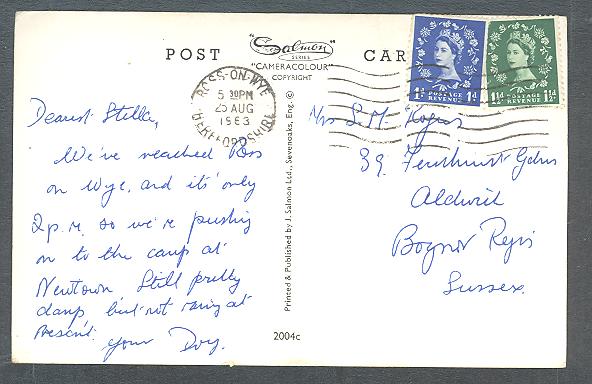 POST CARD
"Salmon
SERIES
"CAMERACOLOUR"
COPYRIGHT
ROSS-ON-WYE
5 30PM
25 AUG
1963
HEREFORDSHIRE
1D POSTAGE REVENUE 1D
1½D POSTAGE REVENUE 1½D
Dearest Stella,
We've reached Ross
on Wye, and it's only
2 p.m. so we're pushing
on to the camp at
Newtown Still pretty
damp but not raining at
present.
your Doy.
Printed & Published by J. Salmon Ltd., Sevenoaks, Eng. ©
Mrs S.M. Rogers
39 Fernhurst Gdns
Aldwick
Bognor Regis
Sussex.
2004c